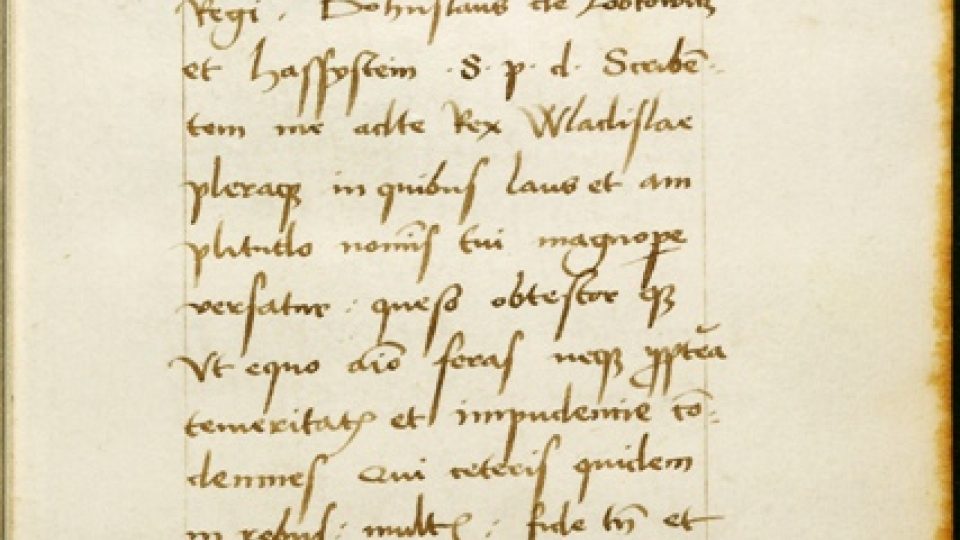 Regi . Bohuslaus de Lobkowitz
et Hassysteim . S . p . d . Scribē-
tem me adte Rex Wladislae
pleraqꝫ in quibus laus et am
plitudo nomĩs tui magnope
versatur : queso obtestor qꝫ
Vt equo aĩo feras neqꝫ ꝓpterea
temeritatꝭ et impudencie cõ-
demnes Qui ceteris quidem
in rebus : multꝭ : fide tñ et